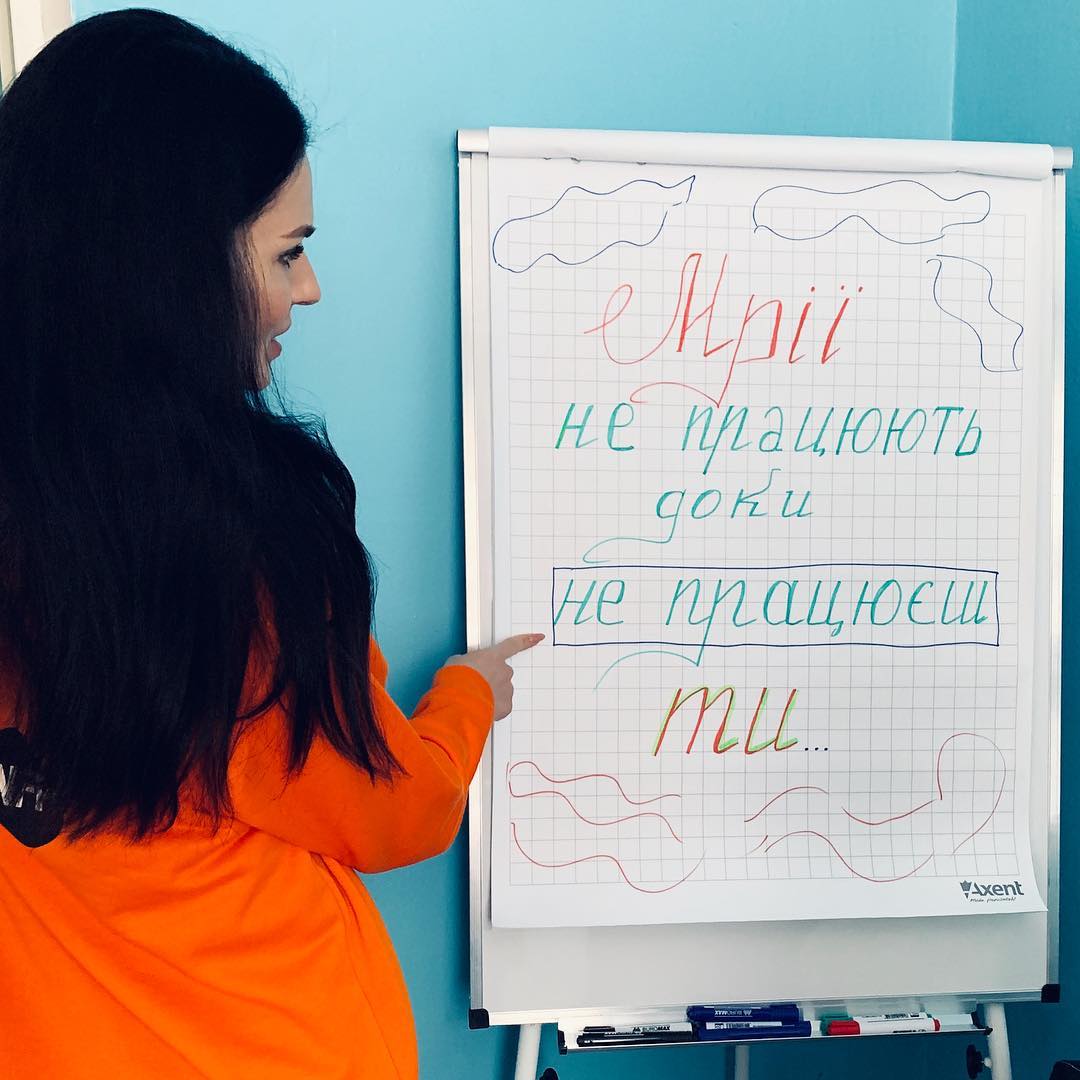 Мрії
не працюють
доки
не працюєш
ти...
Axent
BUROMAX
BUROMAX